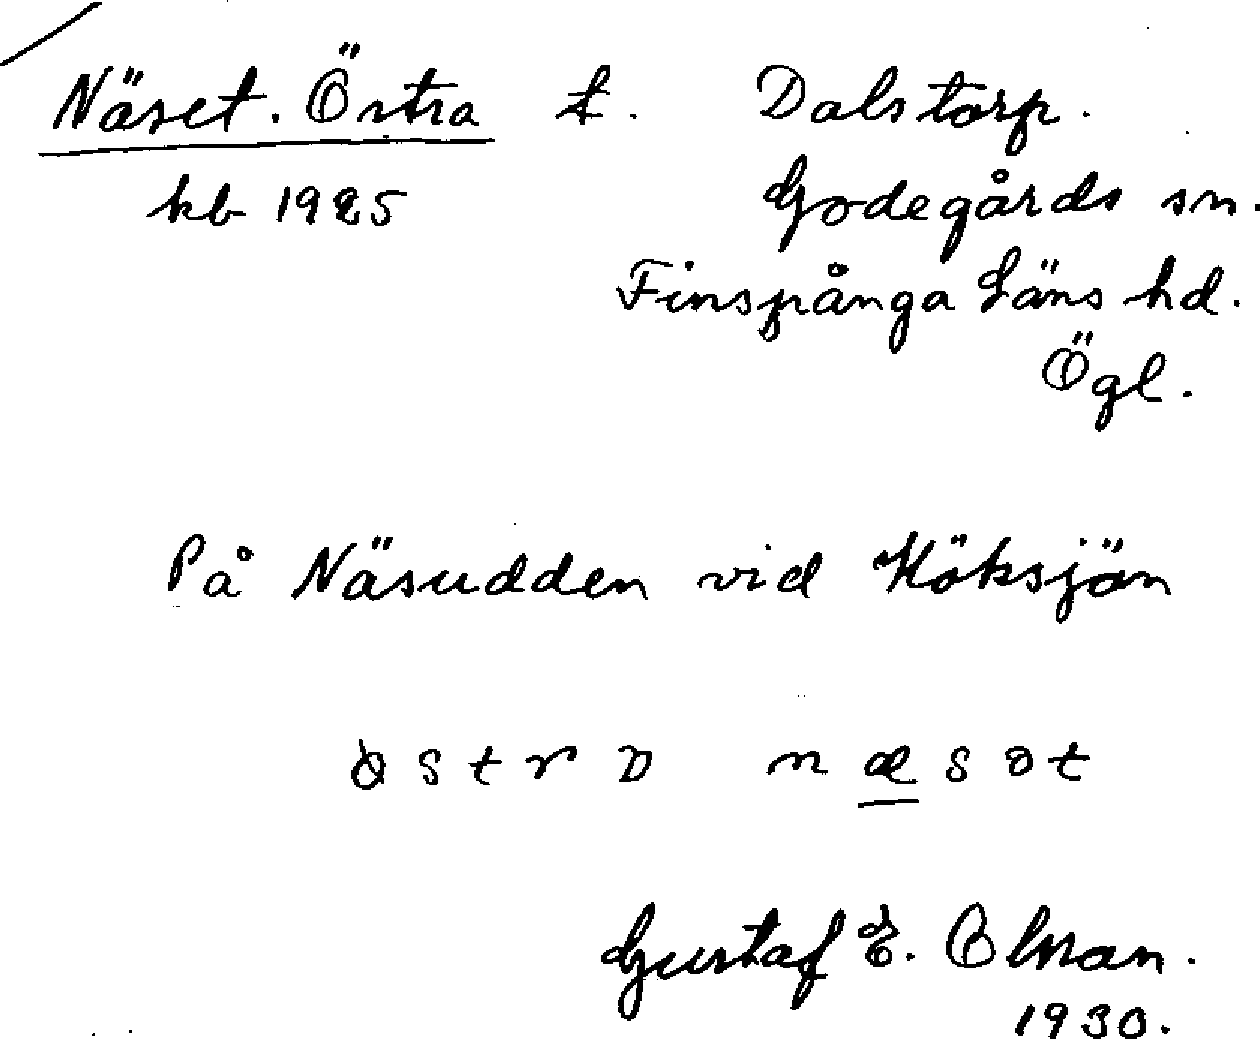 Näset. Östra t. Dalstorp.
kb 1925 Godegårds sn.
Finspånga Läns hd.
Ögl.
På Näsudden vid Höksjön
næsət
Gustaf E. Olman.
1930.